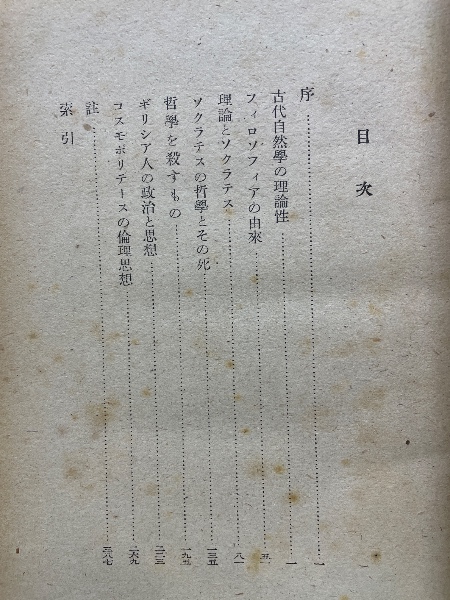 目次
序……一
古代自然學の理論性……一
フィロソフィアの由來……五一
理論とソクラテス……八一
ソクラテスの哲學とその死……一三五
哲學を殺すもの……一九五
ギリシア人の政治と思想……二三三
コスモポリテースの倫理思想……二六九
註……二八七
索引